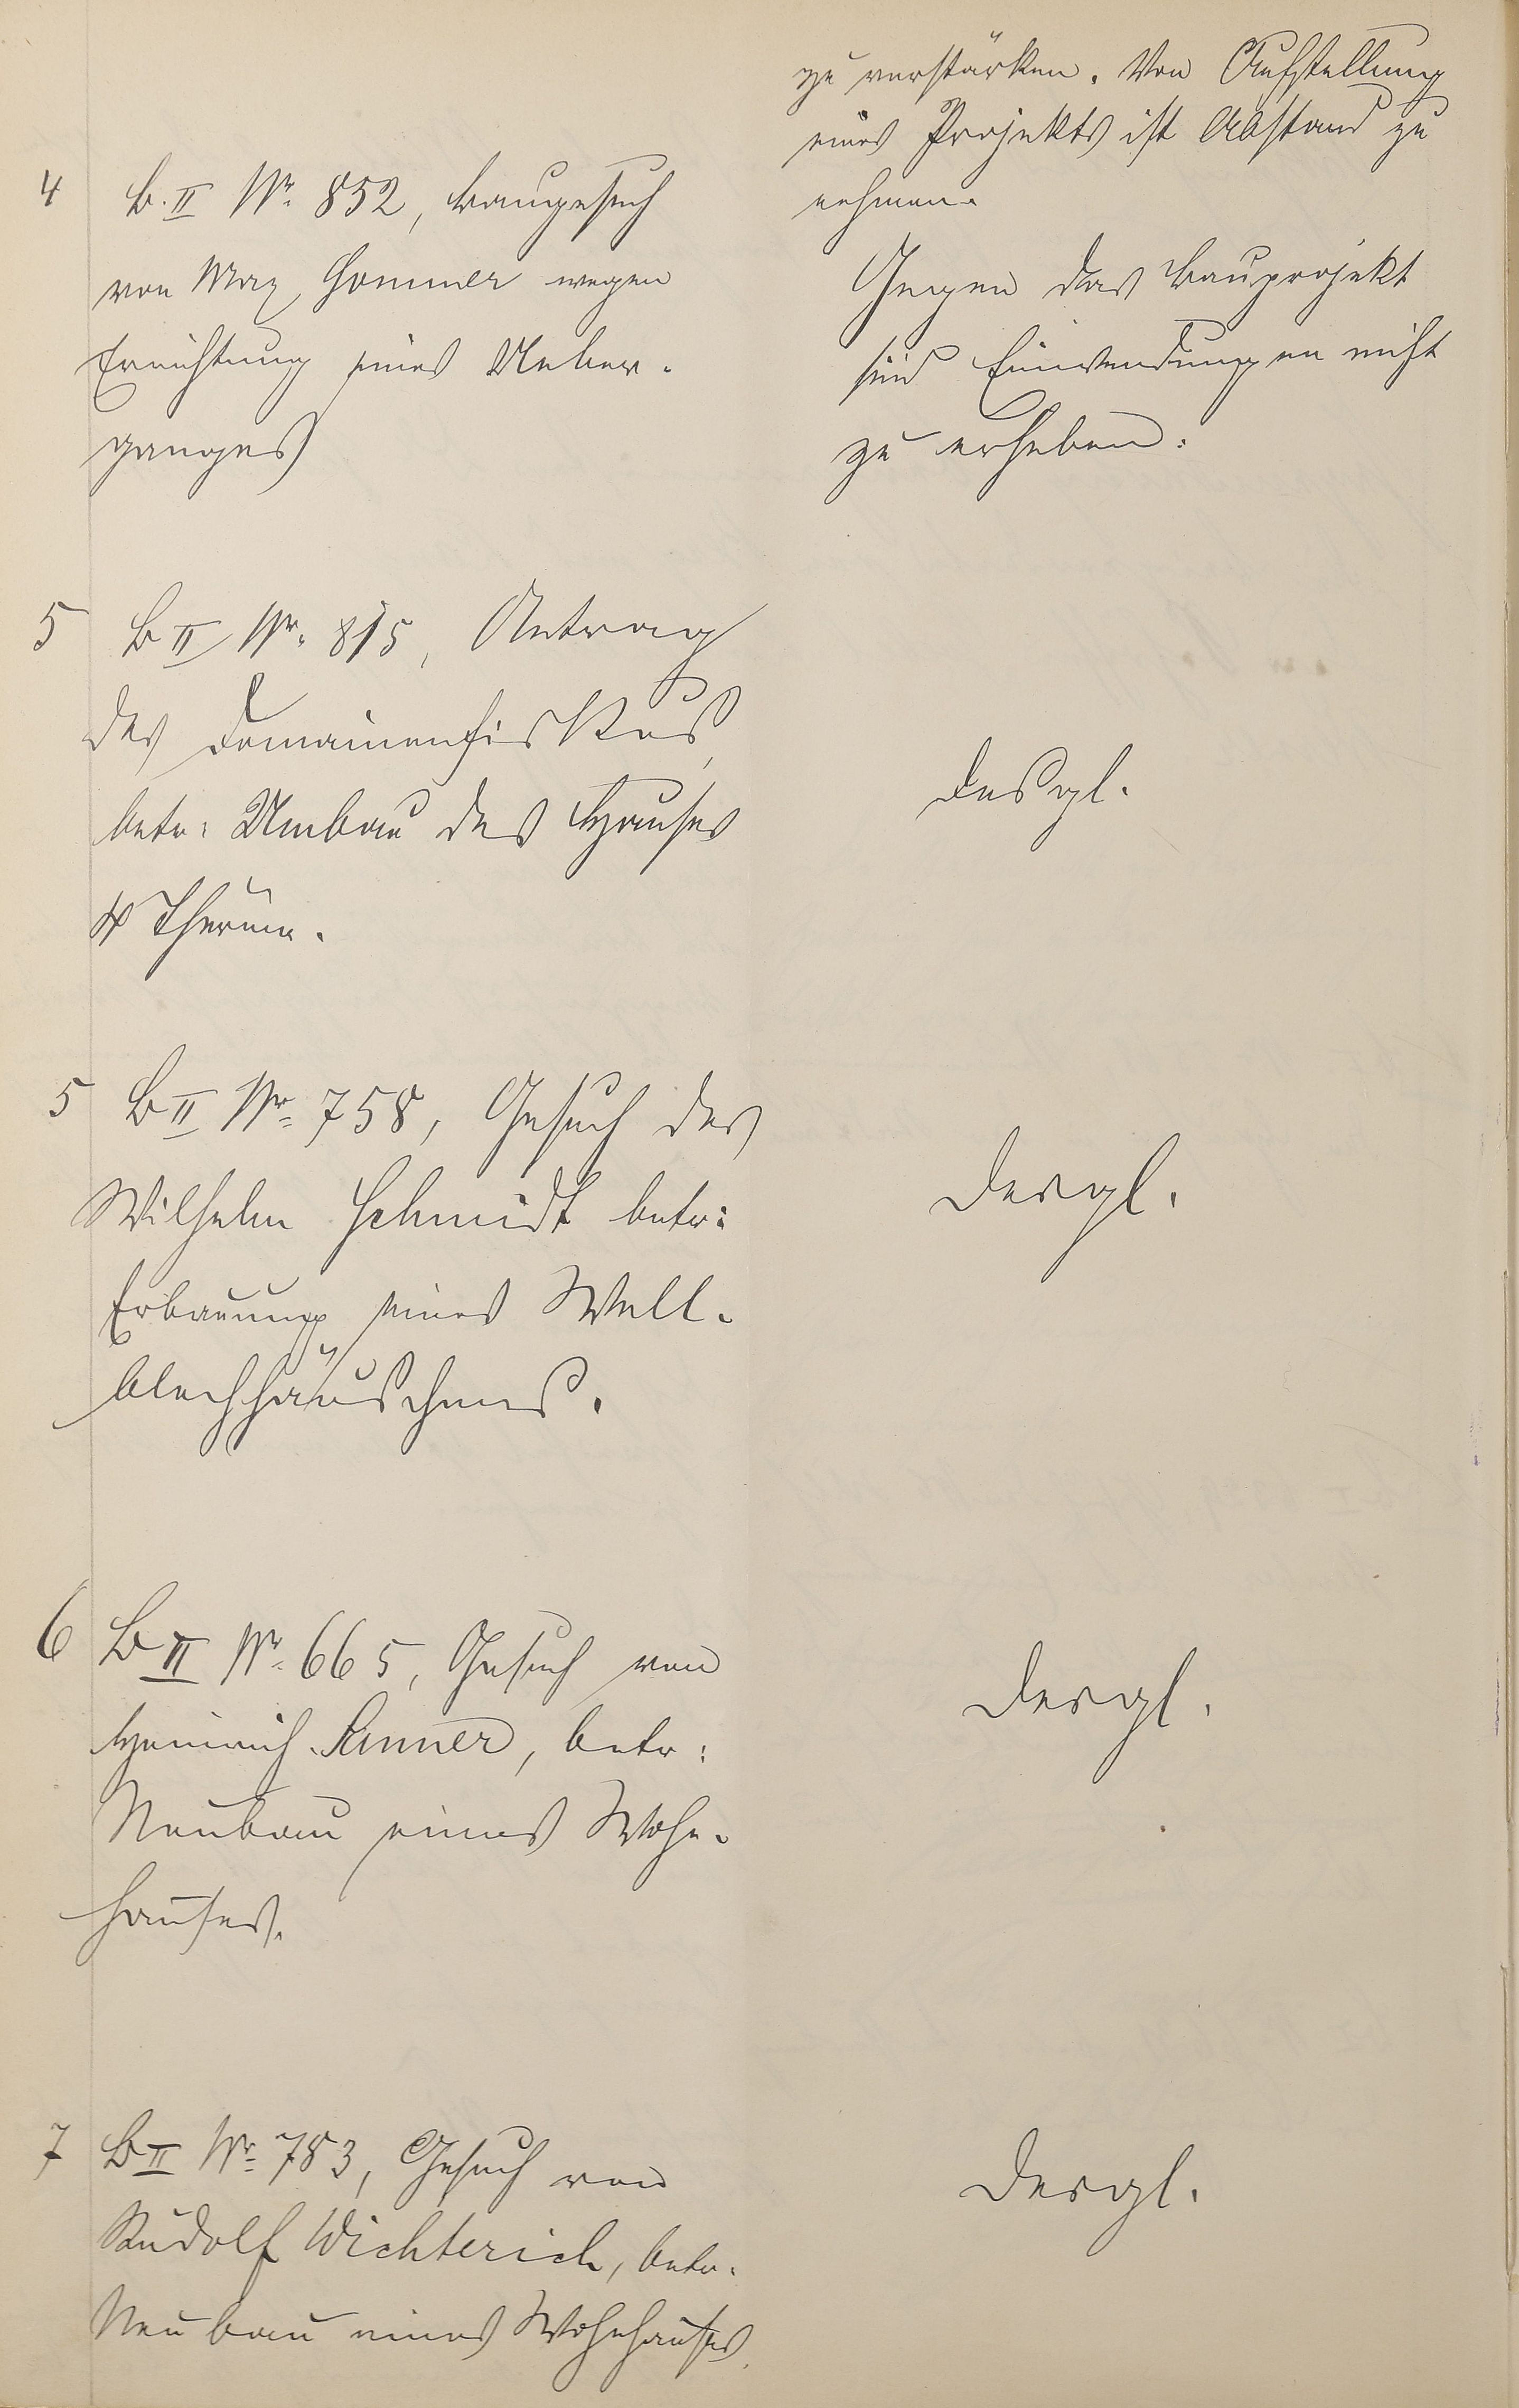 zu verstärken. Von Aufstellung
eines Projekts ist Abstand zu
nehmen.
4 B. II Nr. 852, Baugesuch
von Max Hommer wegen
Errichtung eines Ueber-
ganges
Gegen das Bauprojekt
sind Einwendungen nicht
zu erheben.
5 B II Nr. 815, Antrag
des Domainenfiskus,
betr. Umbau des Hauses
4 Thürme.
desgl.
5 B II Nr. 758, Gesuch des
Wilhelm Schmidt betr.
Erbauung eines Well-
blechhäuschens.
desgl.
6 B II Nr. 665, Gesuch von
Heinrich Sanner, betr.
Neubau eines Wohn-
hauses.
desgl.
7 B II Nr. 783, Gesuch von
Rudolf Wichterich, betr.
Neubau eines Wohnhauses.
desgl.